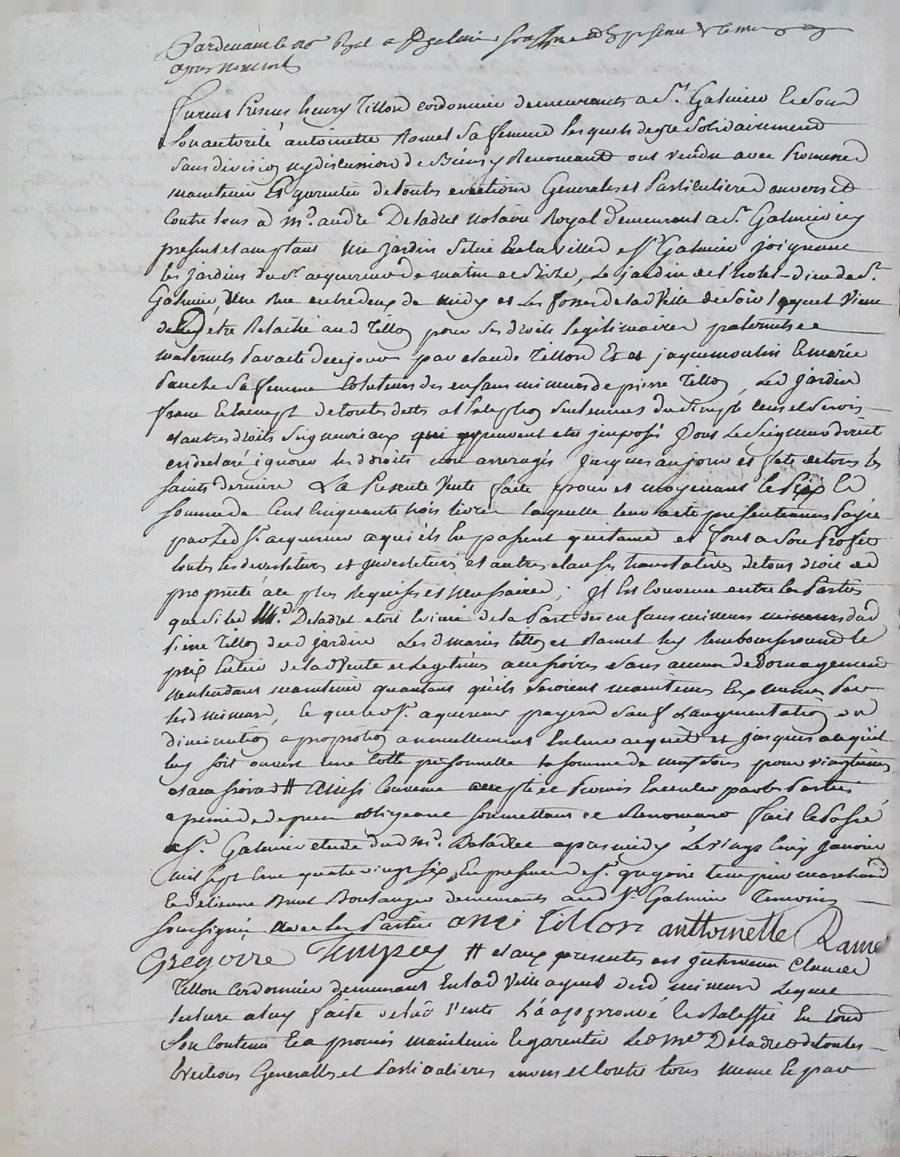 Pardevant le no Royal a St galmier soussigné Et presents les temoins
apres nommés
furent Presens henry Tillon cordonnier demeurants a St. Galmier et de Son
Son autorité antoinette Ramel sa femme lesquels de gré solidairement
sans division ny discussion de Biens y Renonçant ont vendu avec Promesse de
maintenir Et garentir de toutes evictions Generales et Particulieres envers et
contre tous a Me. andré Deladret notaire Royal demeurant a St. Galmier icy
present et acceptant un jardin Scitué En la ville de St Galmier joignant
les jardins du Sr. acquereur de matin et Bize, le jardin de l'hotel-dieu de St.
Galmier, une Rue entredeux de midy et les fosses de la ville de Soir lequel vient
d'etre Relaché aud Tillon pour ses droits legitimaires paternels et
maternels par acte de ce jour par claude Tillon Et jaquemoulin Et marie
sa femme tuteurs des enfans mineurs de pierre Tillon, Led jardin
franc Et Exempt de toutes dettes a l'exception Seulement du Simple cens et Servis
et autres droits Seigneuriaux qui y peuvent etre imposés Sous le Seigneur direct
en declaré ignorer les droits non arreragés jusques au jour et fete de tous les
saints derniere La Presente Vente faite pour et moyenant le Prix Et
somme de Cent Cinquante trois livres laquelle leur a eté presentement Payée
par Led Sr. acquereur a quoi ils En passent quittance et Sont a Son Profit
toutes les devestitures et investitures et autres clauses translatives de tous droit et
propriété a ce plus Requises et Necessaires; Il Est Convenu entre les Parties
que Si led Me. Deladret etoit Evincé de la Part des enfans mineurs mineurs dud
Pierre Tillon dud jardin Les d mariés tillon et Ramel luy Rembourseront le
prix Entier de la d Vente et Legitimes accessoires et sans aucun dedomagement
n'entendans maintenir qu'autant qu'ils Seroient maintenus Eux memes par
lesd mineurs, le quel Sr. aquereur payera Sauf l'augmentation ou
diminution a proportion annuellement En leur acquit et jusques a ce qu'il
luy soit ouvert une Cotte personnelle la somme de neuf Sous pour vingtiemes
et accessoires # ainsi Convenu accepté et Promis Executer par les Parties
a peine de depens obligeant Soumettant et Renonçant fait et Passé
a St. Galmier etude dud Me. Deladret apres midy Le vingt cinq janvier
mil sept Cent quatre vingt Six, En presence de Sr. gregoire tempier marchand
et d'Etienne Brunt Boulanger demeurants aud St Galmier Temoins
Soussignés avec les Parties anri Tillon anttoinette Ramel
Gregoire # et aux presentes est intervenu Claude
Tillon Cordonnier demeurant En lad Ville ayeul desd mineurs lequel
lecture a luy faite de lad Vente l'a approuvé et Ratiffié En tout
Son Contenu et a promis maintenir et garentir Led Me. Deladret de toutes
Evictions Generalles et Particulieres envers et Contre tous meme le par